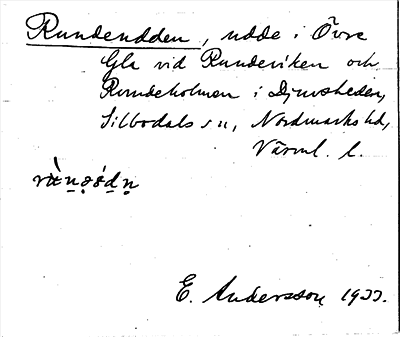 Rundeudden, udde i Övre
Gla vid Rundeviken och
Rundeholmen i Djuvsheden,
Silbodals sn, Nordmarks hd,
Värml. l.
E. Andersson 1933.